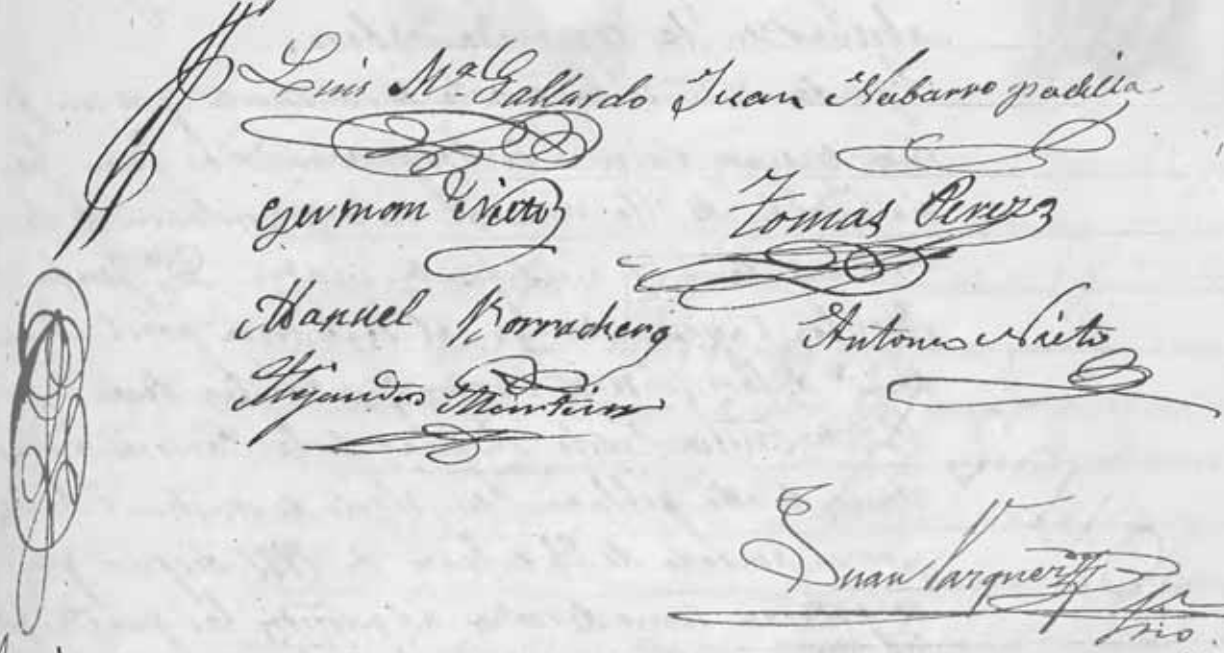 Luis Mª Gallardo Juan Nabarro padilla
German Nieto Tomas Perez
Manuel Borrachero Antonio Nieto
Alejandro Martin
Juan Vazquez
Srio.